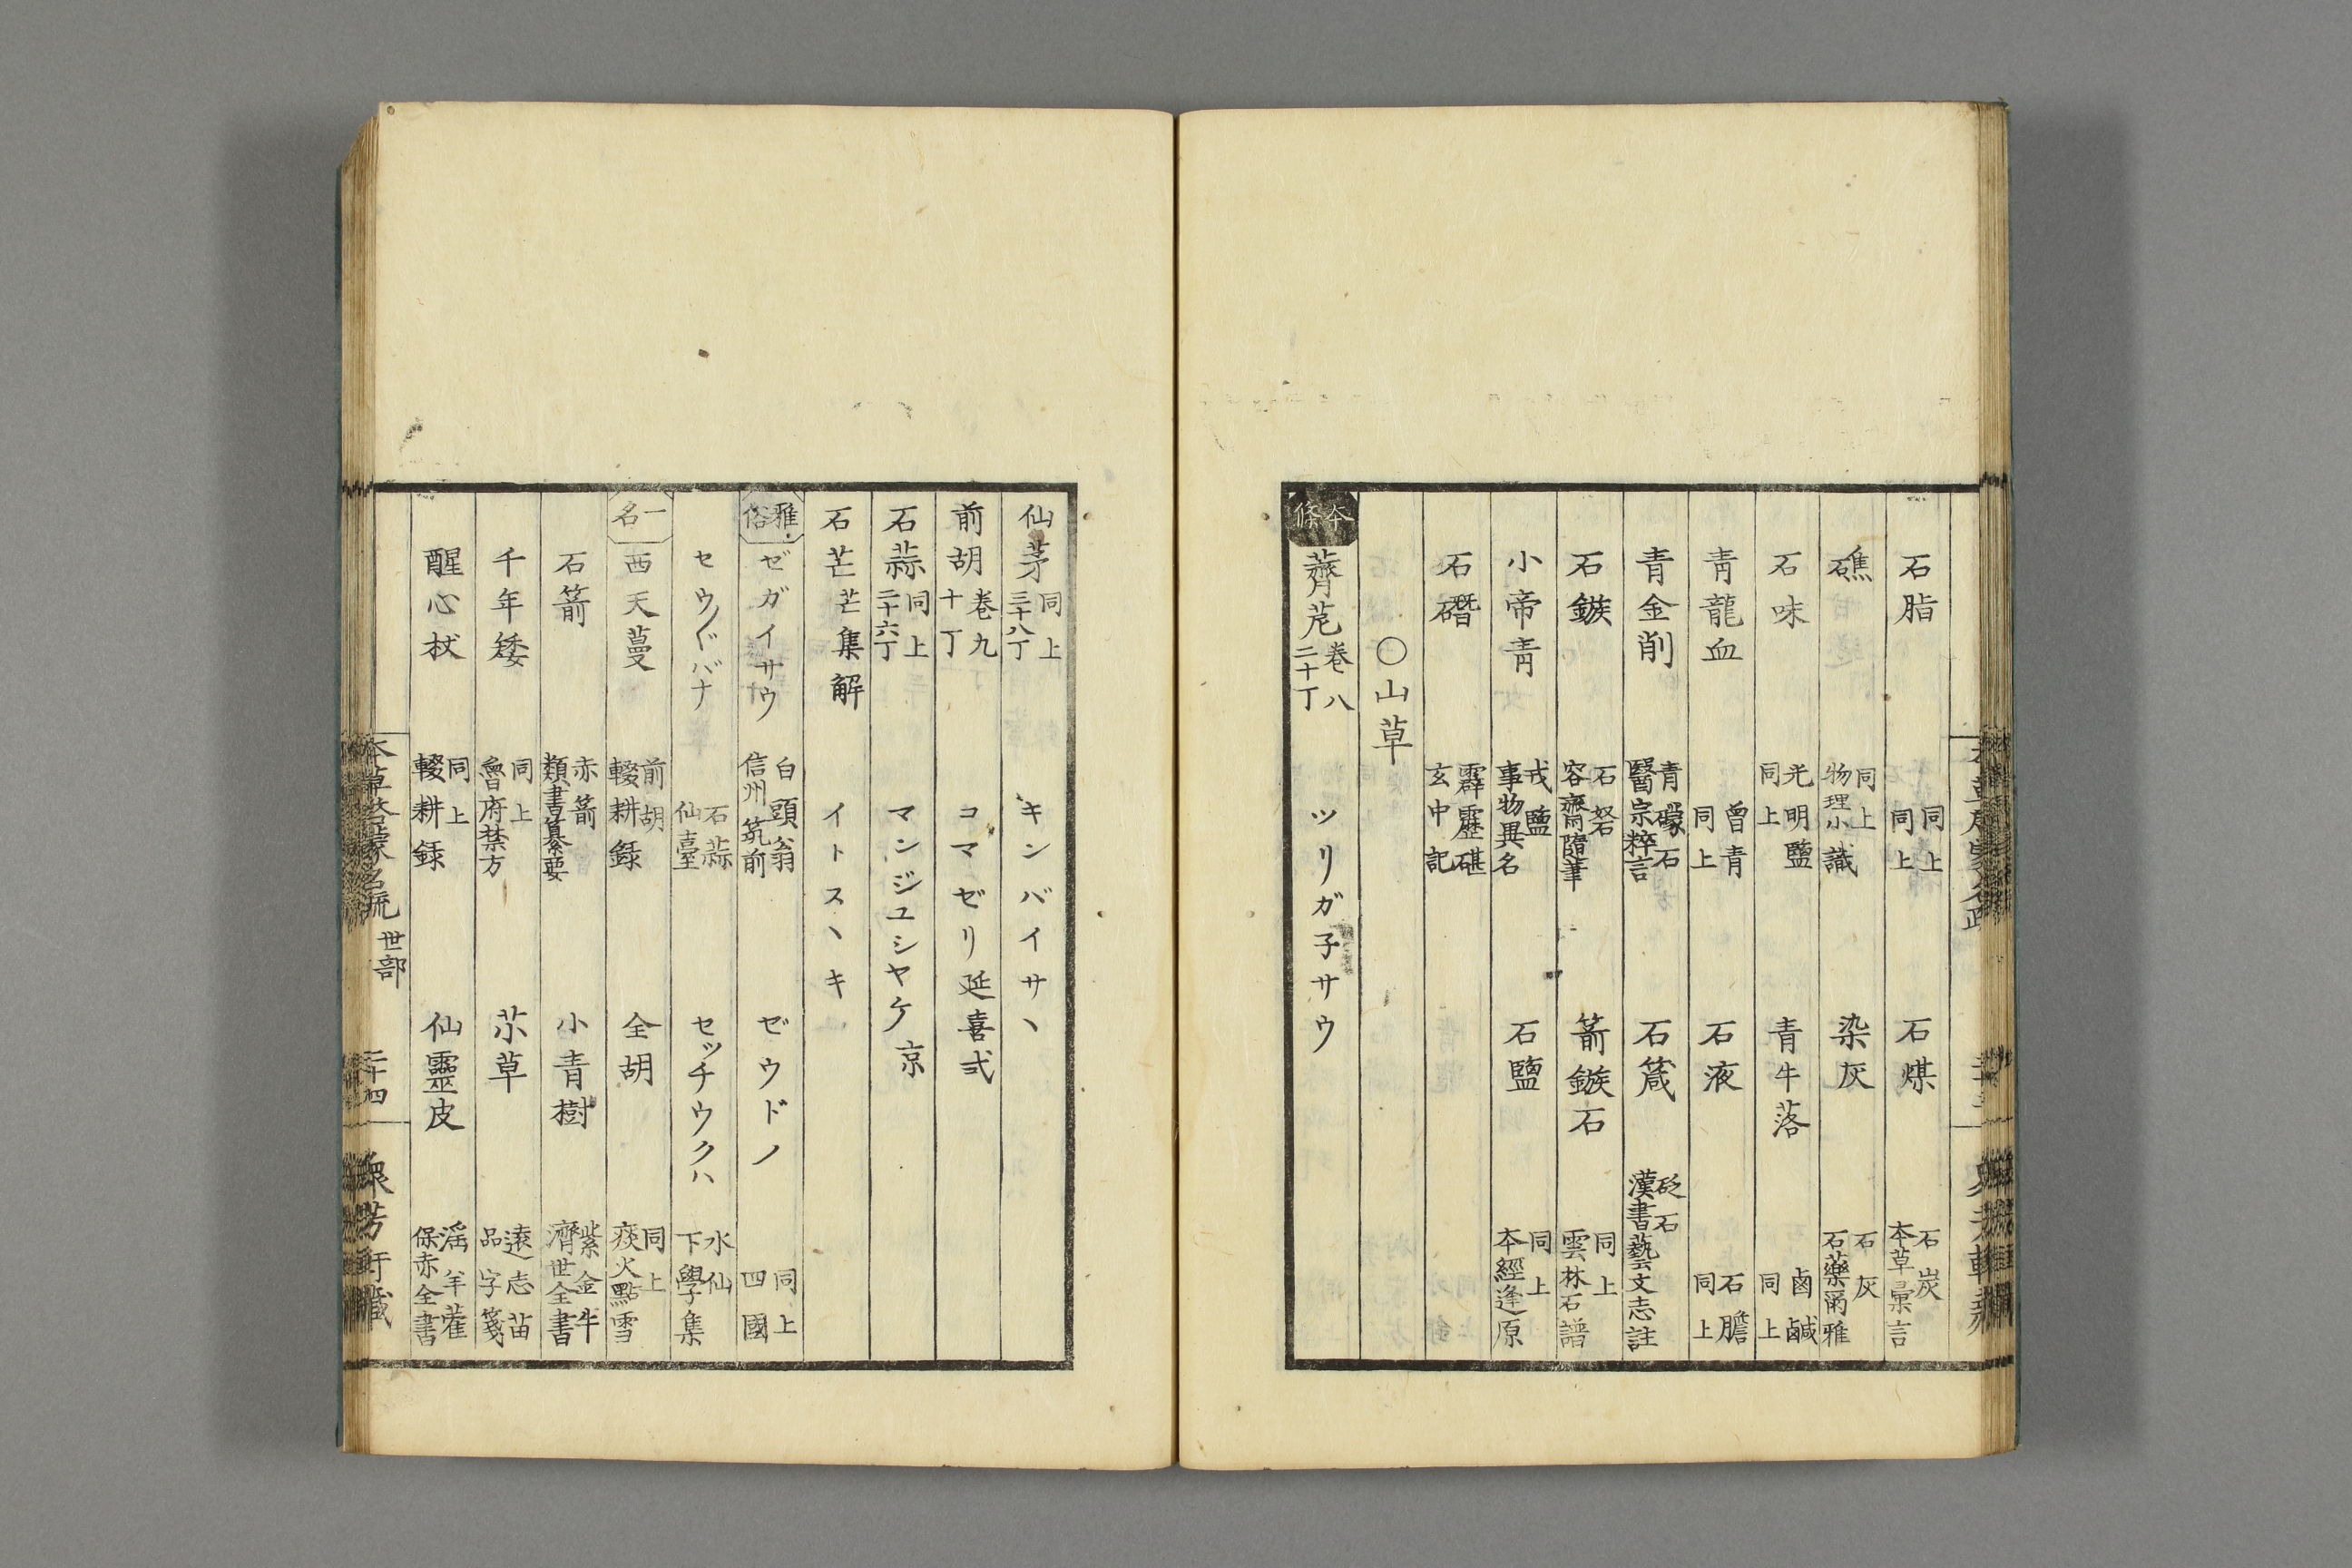 石脂 同上 同上 石煤 石炭 本草彙言
礁 同上 物理小識 染灰 石灰 石藥爾雅
石味 光明鹽 同上 青牛落 鹵鹹 同上
青龍血 曾青 同上 石液 石膽 同上
青金削 青礞石 醫宗粹言 石箴 砭石 漢書藝文志註
石鏃 石砮 容齋隨筆 箭鏃石 同上 雲林石譜
小帝青 戎鹽 事物異名 石鹽 同上 本經逢原
石䃡 霹靂碪 玄中記
○山草
本條 薺苨 卷八 二十丁 ツリガ子サウ
仙茅 同上 三十八丁 キンバイサヽ
前胡 卷九 十丁 コマゼリ 延喜式
石蒜 同上 二十六丁 マンジユシヤケ 京
石芒 芒集解 イトスヽキ
雅俗 ゼガイサウ 白頭翁 信州 筑前 ゼウドノ 同上 四國
セウ〴〵バナ 石蒜 仙臺 セッチウクハ 水仙 下學集
一名 西天蔓 前胡 輟耕録 全胡 同上 痰火點雪
石箭 赤箭 類書纂要 小青樹 紫金牛 濟世全書
千年矮 同上 魯府禁方 苶草 遠志苗 品字箋
醒心杖 同上 輟耕録 仙靈皮 淫羊藿 保赤全書
本草啓蒙名疏 世部 二十四 衆芳軒藏